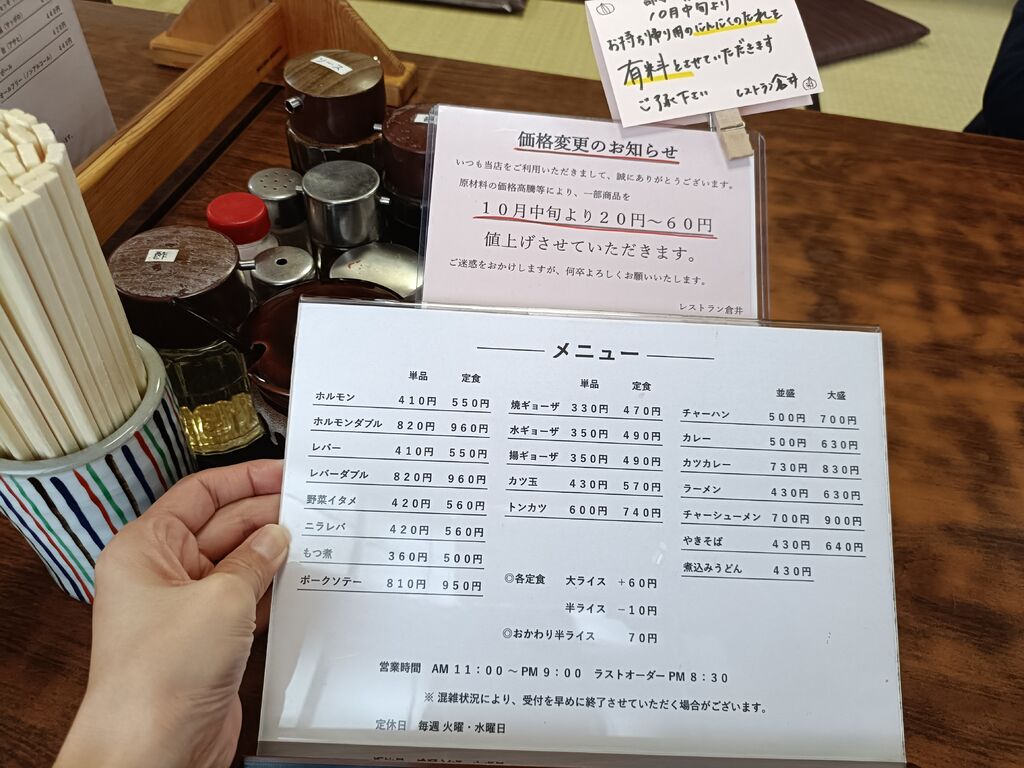 10月中旬より
お持ち帰り用のにんにくのたれを
有料とさせていただきます
ご了承下さい
レストラン倉井
ソース
酢
価格変更のお知らせ
いつも当店をご利用いただきまして、誠にありがとうございます。
原材料の価格高騰等により、一部商品を
10月中旬より20円～60円
値上げさせていただきます。
ご迷惑をおかけしますが、何卒よろしくお願いいたします。
レストラン倉井
メニュー
単品 定食
ホルモン 410円 550円
ホルモンダブル 820円 960円
レバー 410円 550円
レバーダブル 820円 960円
野菜イタメ 420円 560円
ニラレバ 420円 560円
もつ煮 360円 500円
ポークソテー 810円 950円
単品 定食
焼ギョーザ 330円 470円
水ギョーザ 350円 490円
揚ギョーザ 350円 490円
カツ玉 430円 570円
トンカツ 600円 740円
並盛 大盛
チャーハン 500円 700円
カレー 500円 630円
カツカレー 730円 830円
ラーメン 430円 630円
チャーシューメン 700円 900円
やきそば 430円 640円
煮込みうどん 430円
◎各定食 大ライス +60円
半ライス −10円
◎おかわり半ライス 70円
営業時間 AM 11：00 ～ PM 9：00 ラストオーダー PM 8：30
※ 混雑状況により、受付を早めに終了させていただく場合がございます。
定休日 毎週 火曜・水曜日